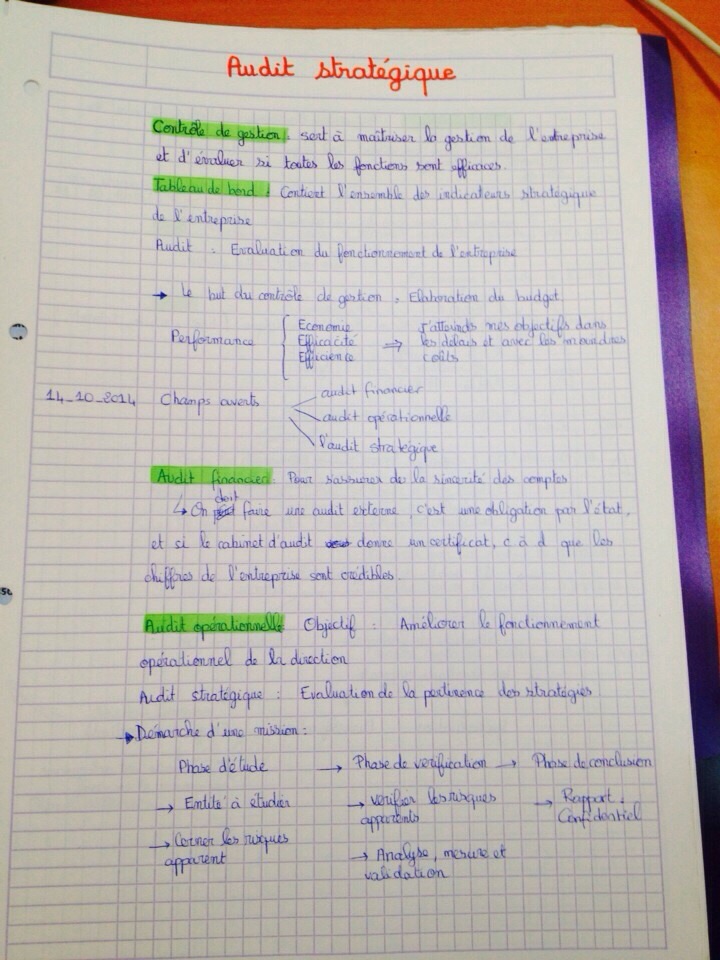 Audit stratégique
Contrôle de gestion : sert à maîtriser la gestion de l'entreprise
et d'évaluer si toutes les fonctions sont efficaces.
Tableau de bord : Contient l'ensemble des indicateurs stratégique
de l'entreprise
Audit : Evaluation du fonctionnement de l'entreprise
→ Le but du contrôle de gestion : Elaboration du budget
Performance { Economie
Efficacité
Efficience
⇒ J'atteinds mes objectifs dans
les délais et avec les moindres
coûts
14_10_2014 Champs averts
audit financier
audit opérationnelle
l'audit stratégique
Audit financier : Pour s'assurer de la sincérité des comptes
↳ On doit faire une audit externe, c'est une obligation par l'état,
et si le cabinet d'audit donne un certificat, c à d que les
chiffres de l'entreprise sont crédibles.
Audit opérationnelle Objectif : Améliorer le fonctionnement
opérationnel de la direction
Audit stratégique : Evaluation de la pertinence des stratégies
→ Démarche d'une mission :
Phase d'étude → Phase de vérification → Phase de conclusion
→ Entité à étudier
→ Cerner les risques
apparent
→ vérifier les risques
apparents
→ Analyse, mesure et
validation
→ Rapport :
Confidentiel